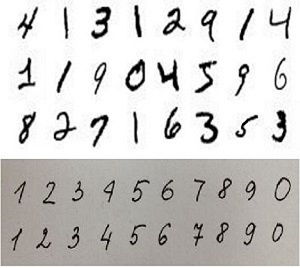 4 1 3 1 2 9 1 4
1 1 9 0 4 5 9 6
8 2 7 1 6 3 5 3
1 2 3 4 5 6 7 8 9 0
1 2 3 4 5 6 7 8 9 0